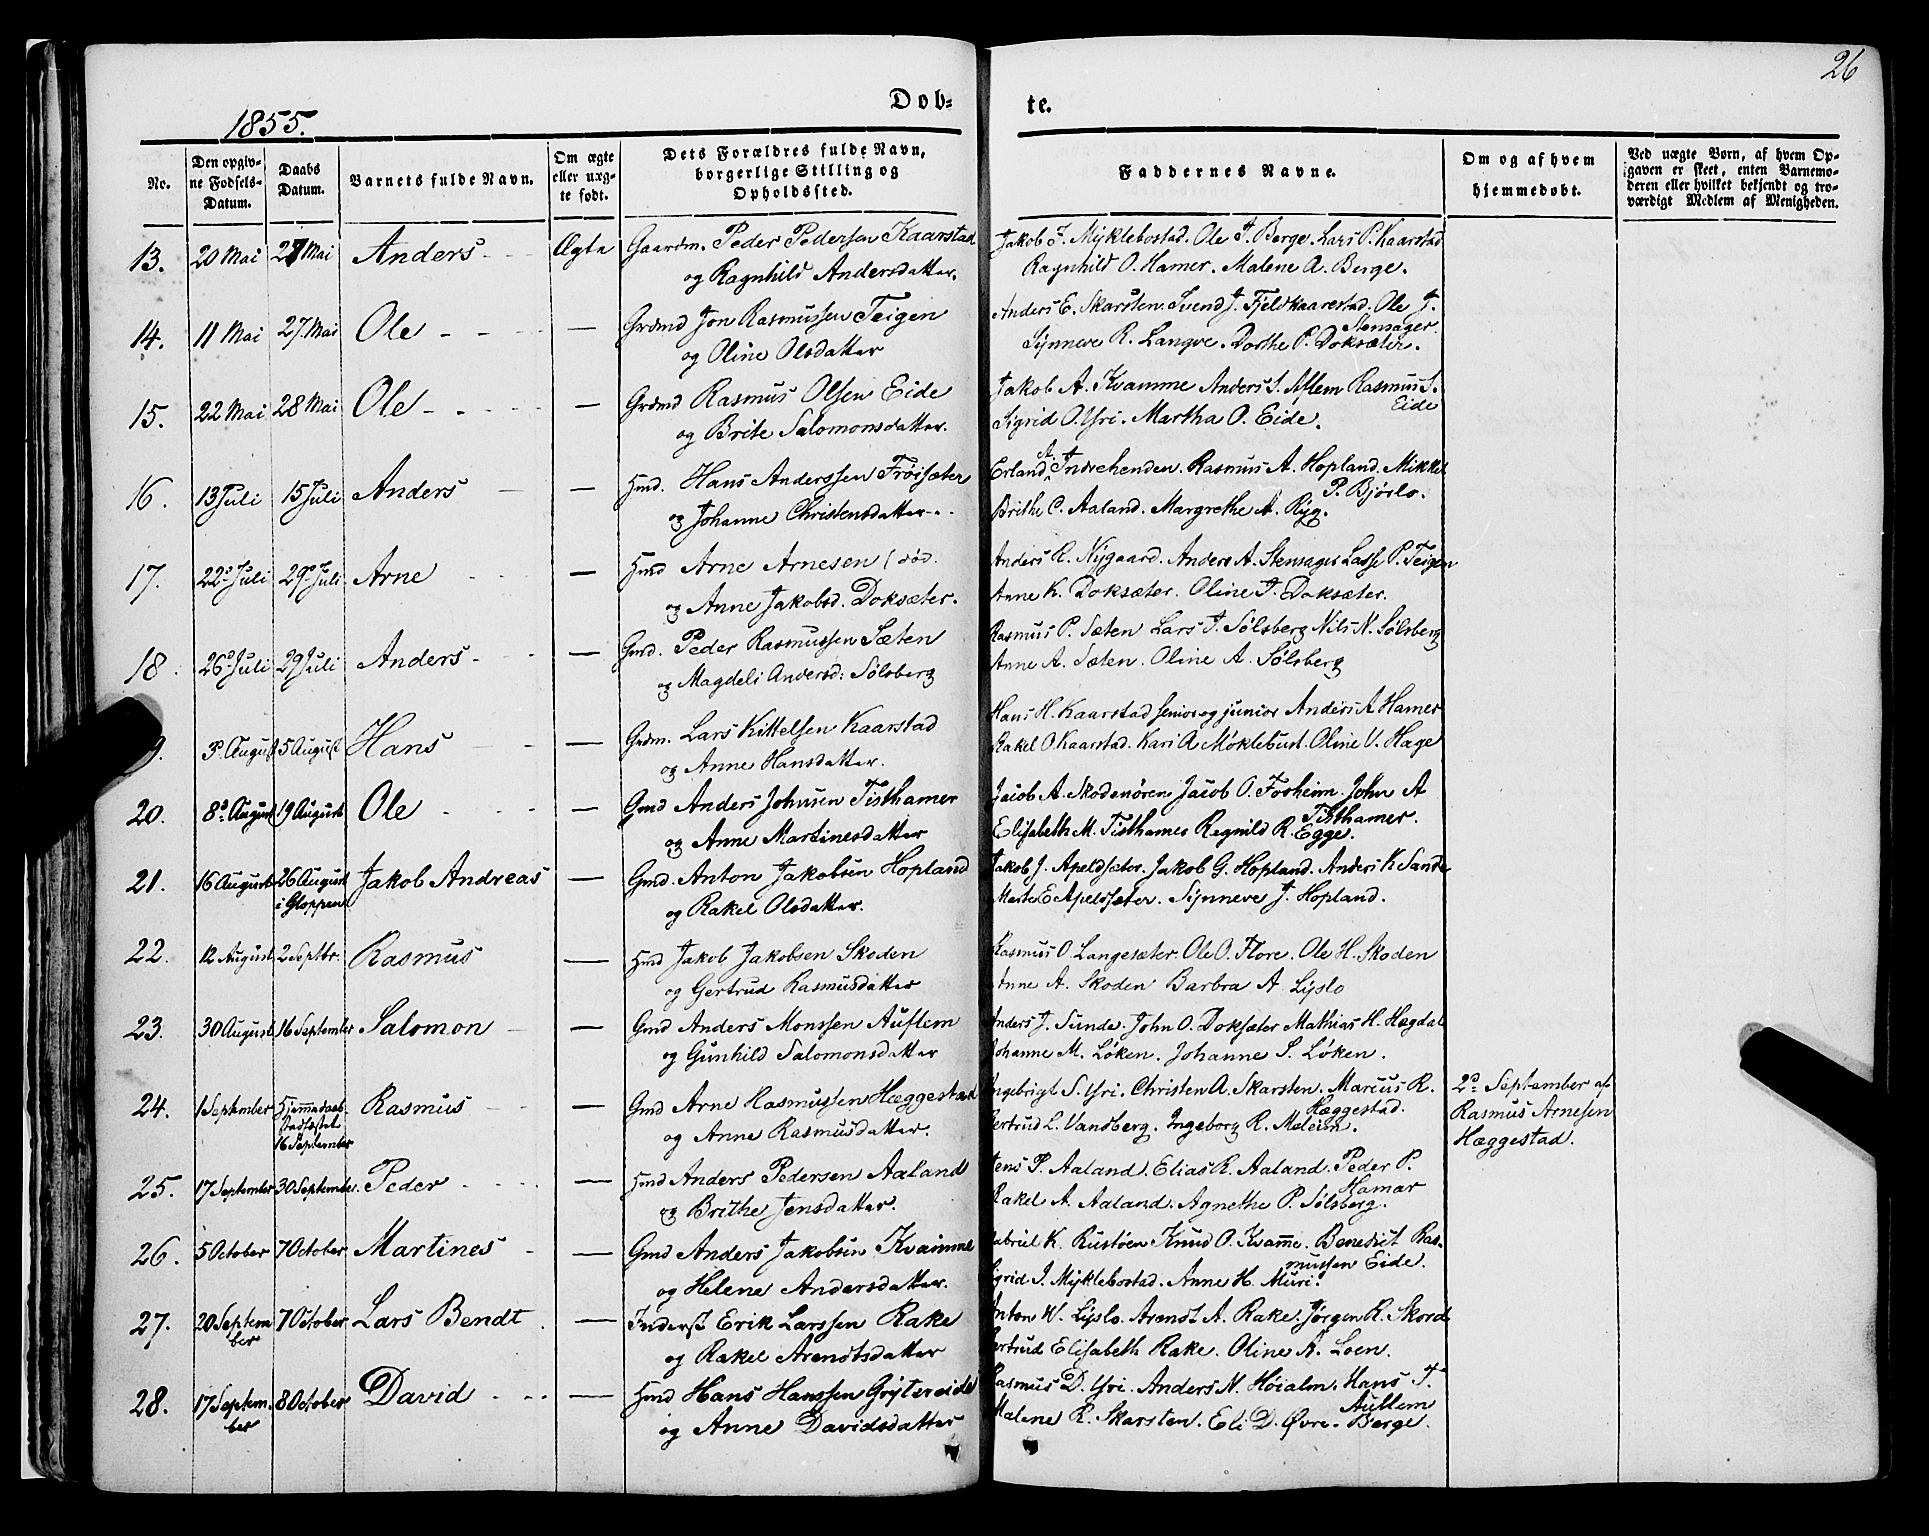 26
1855.
Døb-
te.
No.
Den opgiv-
ne Fødsels-
Datum.
Daabs
Datum.
Barnets fulde Navn.
Om ægte
eller uæg-
te født.
Dets Forældres fulde Navn,
borgerlige Stilling og
Opholdssted.
Faddernes Navne.
Om og af hvem
hjemmedøbt.
Ved uægte Børn, af hvem Op-
gaven er skeet, enten Barnemo-
deren eller hvilket bekjendt og tro-
værdigt Medlem af Menigheden.
13. 20 Mai 27 Mai Anders Ægte Gaardm. Peder Pedersen Kaarstad
og Ragnhild Andersdatter.
Jakob J. Myklebostad. Ole J. Berge. Lars P. Kaarstad
Ragnhild O. Hamer. Malene A. Berge.
14. 11 Mai 27 Mai Ole — Grdmd Jon Rasmussen Teigen
og Oline Olsdatter
Anders E. Skarsten. Svend J. Fjeldkaarstad. Ole J.
Stensager
Synneve R. Langve. Dorthe P. Doksæter.
15. 22 Mai 28 Mai Ole — Grdmd Rasmus Olsen Eide
og Brite Salomonsdatter.
Jakob A. Kvamme Anders S. Aflem Rasmus S.
Eide
Sigrid O. Yri. Martha O. Eide.
16. 13 Juli 15 Juli Anders — Hmd. Hans Anderssen Frøisæter
og Johanne Christensdatter
Erland A. Indrehenden. Rasmus A. Hopland. Mikkel
P. Bjørlo.
Brithe C. Aaland. Margrethe A. Ryg.
17. 22de Juli 29de Juli Arne — Hmd Arne Arnesen (død.
og Anne Jakobsd. Doksæter.
Anders R. Nygaard. Anders A. Stensager Lasse P. Teigen
Anne K. Doksæter. Oline J. Doksæter.
18. 26de Juli 29 Juli Anders — Gmd. Peder Rasmussen Sæten
og Magdeli Andersd: Sølsberg
Rasmus P. Sæten Lars J. Sølsberg Nils N. Sølsberg
Anne A. Sæten. Oline A. Sølsberg
9. 3d. August 5 August Hans — Grdm. Lars Kittelsen Kaarstad
og Anne Hansdatter.
Hans H. Kaarstad senior og junior Anders A Hamer
Rakel O. Kaarstad. Kari A Møklebust. Oline V. Hage
20. 8d. August 19 August Ole — Gmd Anders Johnsen Tisthamer
og Anne Martinesdatter
Jacob A. Skodenøren Jacob O. Forheim. John A
Tisthamer.
Elisabeth M. Tisthamer Regnild R. Egge.
21. 16 August 26 August Jakob Andreas — Gmd. Anton Jakobsen Hopland
i Gloppen
og Rakel Olsdatter.
Jakob J. Apeldsæter. Jakob G. Hopland. Anders K Sande
Marte E Apeldsæter. Synneve J. Hopland.
22. 12 August 2 Septbr. Rasmus — Hmd Jakob Jakobsen Skoden
og Gertrud Rasmusdatter
Rasmus O. Langesæter Ole O. Flore. Ole H. Skoden
Anne A. Skoden Barbra A Lyslo
23. 30 August 16 September Salomon — Gmd Anders Monssen Auflem
og Gunhild Salomonsdatter
Anders J. Sunde. John O. Doksæter Mathias H. Hægdal
Johanne M. Løken. Johanne S. Løken.
24. 1 September Hjemmedaab Rasmus — Gmd Arne Rasmussen Hæggestad
stadfæstet
16 September
og Anne Rasmusdatter.
Ingebrigt S. Yri. Christen A. Skarsten. Marcus R.
Hæggestad.
Gertrud L. Vandberg. Ingeborg R. Meleim.
2d September af
Rasmus Arnesen
Hæggestad.
25. 17 September 30 September. Peder — Hmd Anders Pedersen Aaland
og Brithe Jensdatter.
Jens P. Aaland. Elias R. Aaland. Peder P.
Hamar
Rakel A. Aaland. Agnethe P. Sølsberg.
26. 5 October 7 October Martines — Gmd Anders Jakobsen Kvamme
og Helene Andersdatter.
Gabriel K. Rustøen Knud O. Kvamme. Benedict Ras-
mussen Eide.
Sigrid J. Myklebostad. Anne H. Muri.
27. 20 Septem 7 October Lars Bendt — Inderst Erik Larssen Rake
ber
og Rakel Arendtsdatter
Anton W. Lyslo. Arendt A. Rake. Jørgen R. Skord
Gertrud Elisabeth Rake. Oline A. Loen.
28. 17 Septem- 8 October David — Hmd Hans Hanssen Grytereide
ber
og Anne Davidsdatter
Rasmus D. Yri. Anders N. Høialm. Hans J.
Auflem
Malene R. Skarsten. Eli D. Øvre-Berge.